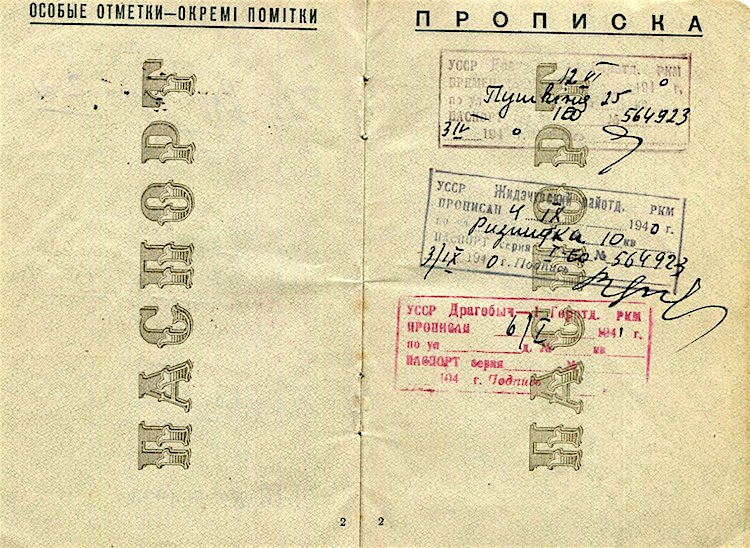 ОСОБЫЕ ОТМЕТКИ—ОКРЕМІ ПОМІТКИ
ПАСПОРТ
2
ПРОПИСКА
ПАСПОРТ
УССР РКМ
12 VI 1940 г.
по ул Пушкина 25
ПАСПОРТ 160 № 564923
3 IV 1940
УССР Жидачевский райотд. РКМ
ПРОПИСАН 4 IX 1940 г.
10 кв
ПАСПОРТ серия I 60 № 564923
3/IX 1940 г. Подпись
УССР Драгобыч I Горотд. РКМ
ПРОПИСАН 6/I 1941 г.
по ул д. № кв
ПАСПОРТ серия №
194 г. Подпись
2